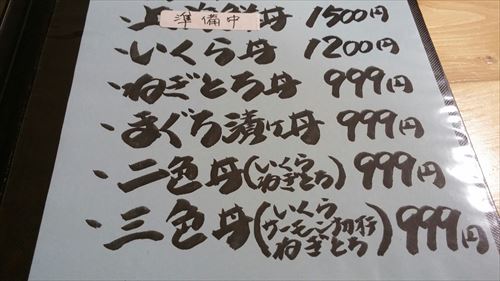 準備中
・上海鮮丼 1500円
・いくら丼 1200円
・ねぎとろ丼 999円
・まぐろ漬け丼 999円
・二色丼(いくら
ねぎとろ) 999円
・三色丼(いくら
サーモン
ねぎとろ) 999円